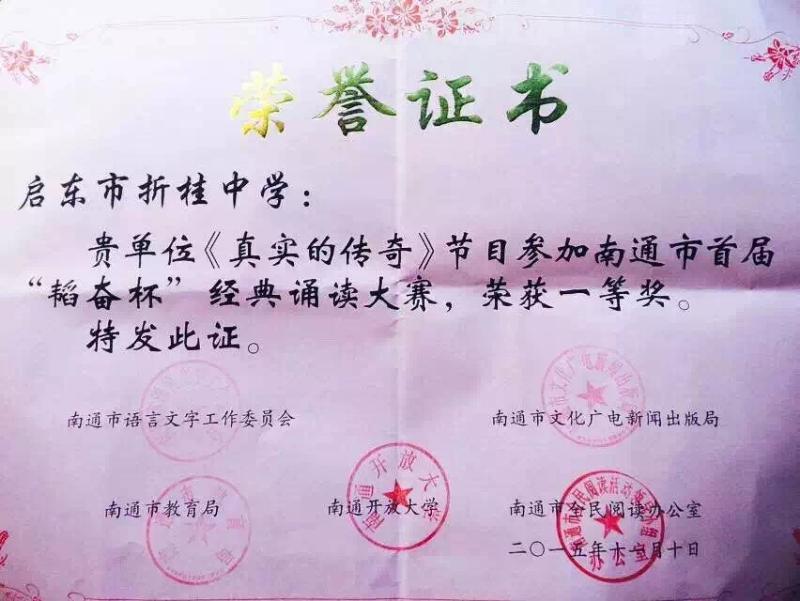 荣誉证书
启东市折桂中学：
贵单位《真实的传奇》节目参加南通市首届
“韬奋杯”经典诵读大赛，荣获一等奖。
特发此证。
南通市语言文字工作委员会
南通市文化广电新闻出版局
南通市教育局
南通开放大学
南通市全民阅读办公室
二〇一五年十一月十日
南通开放大学